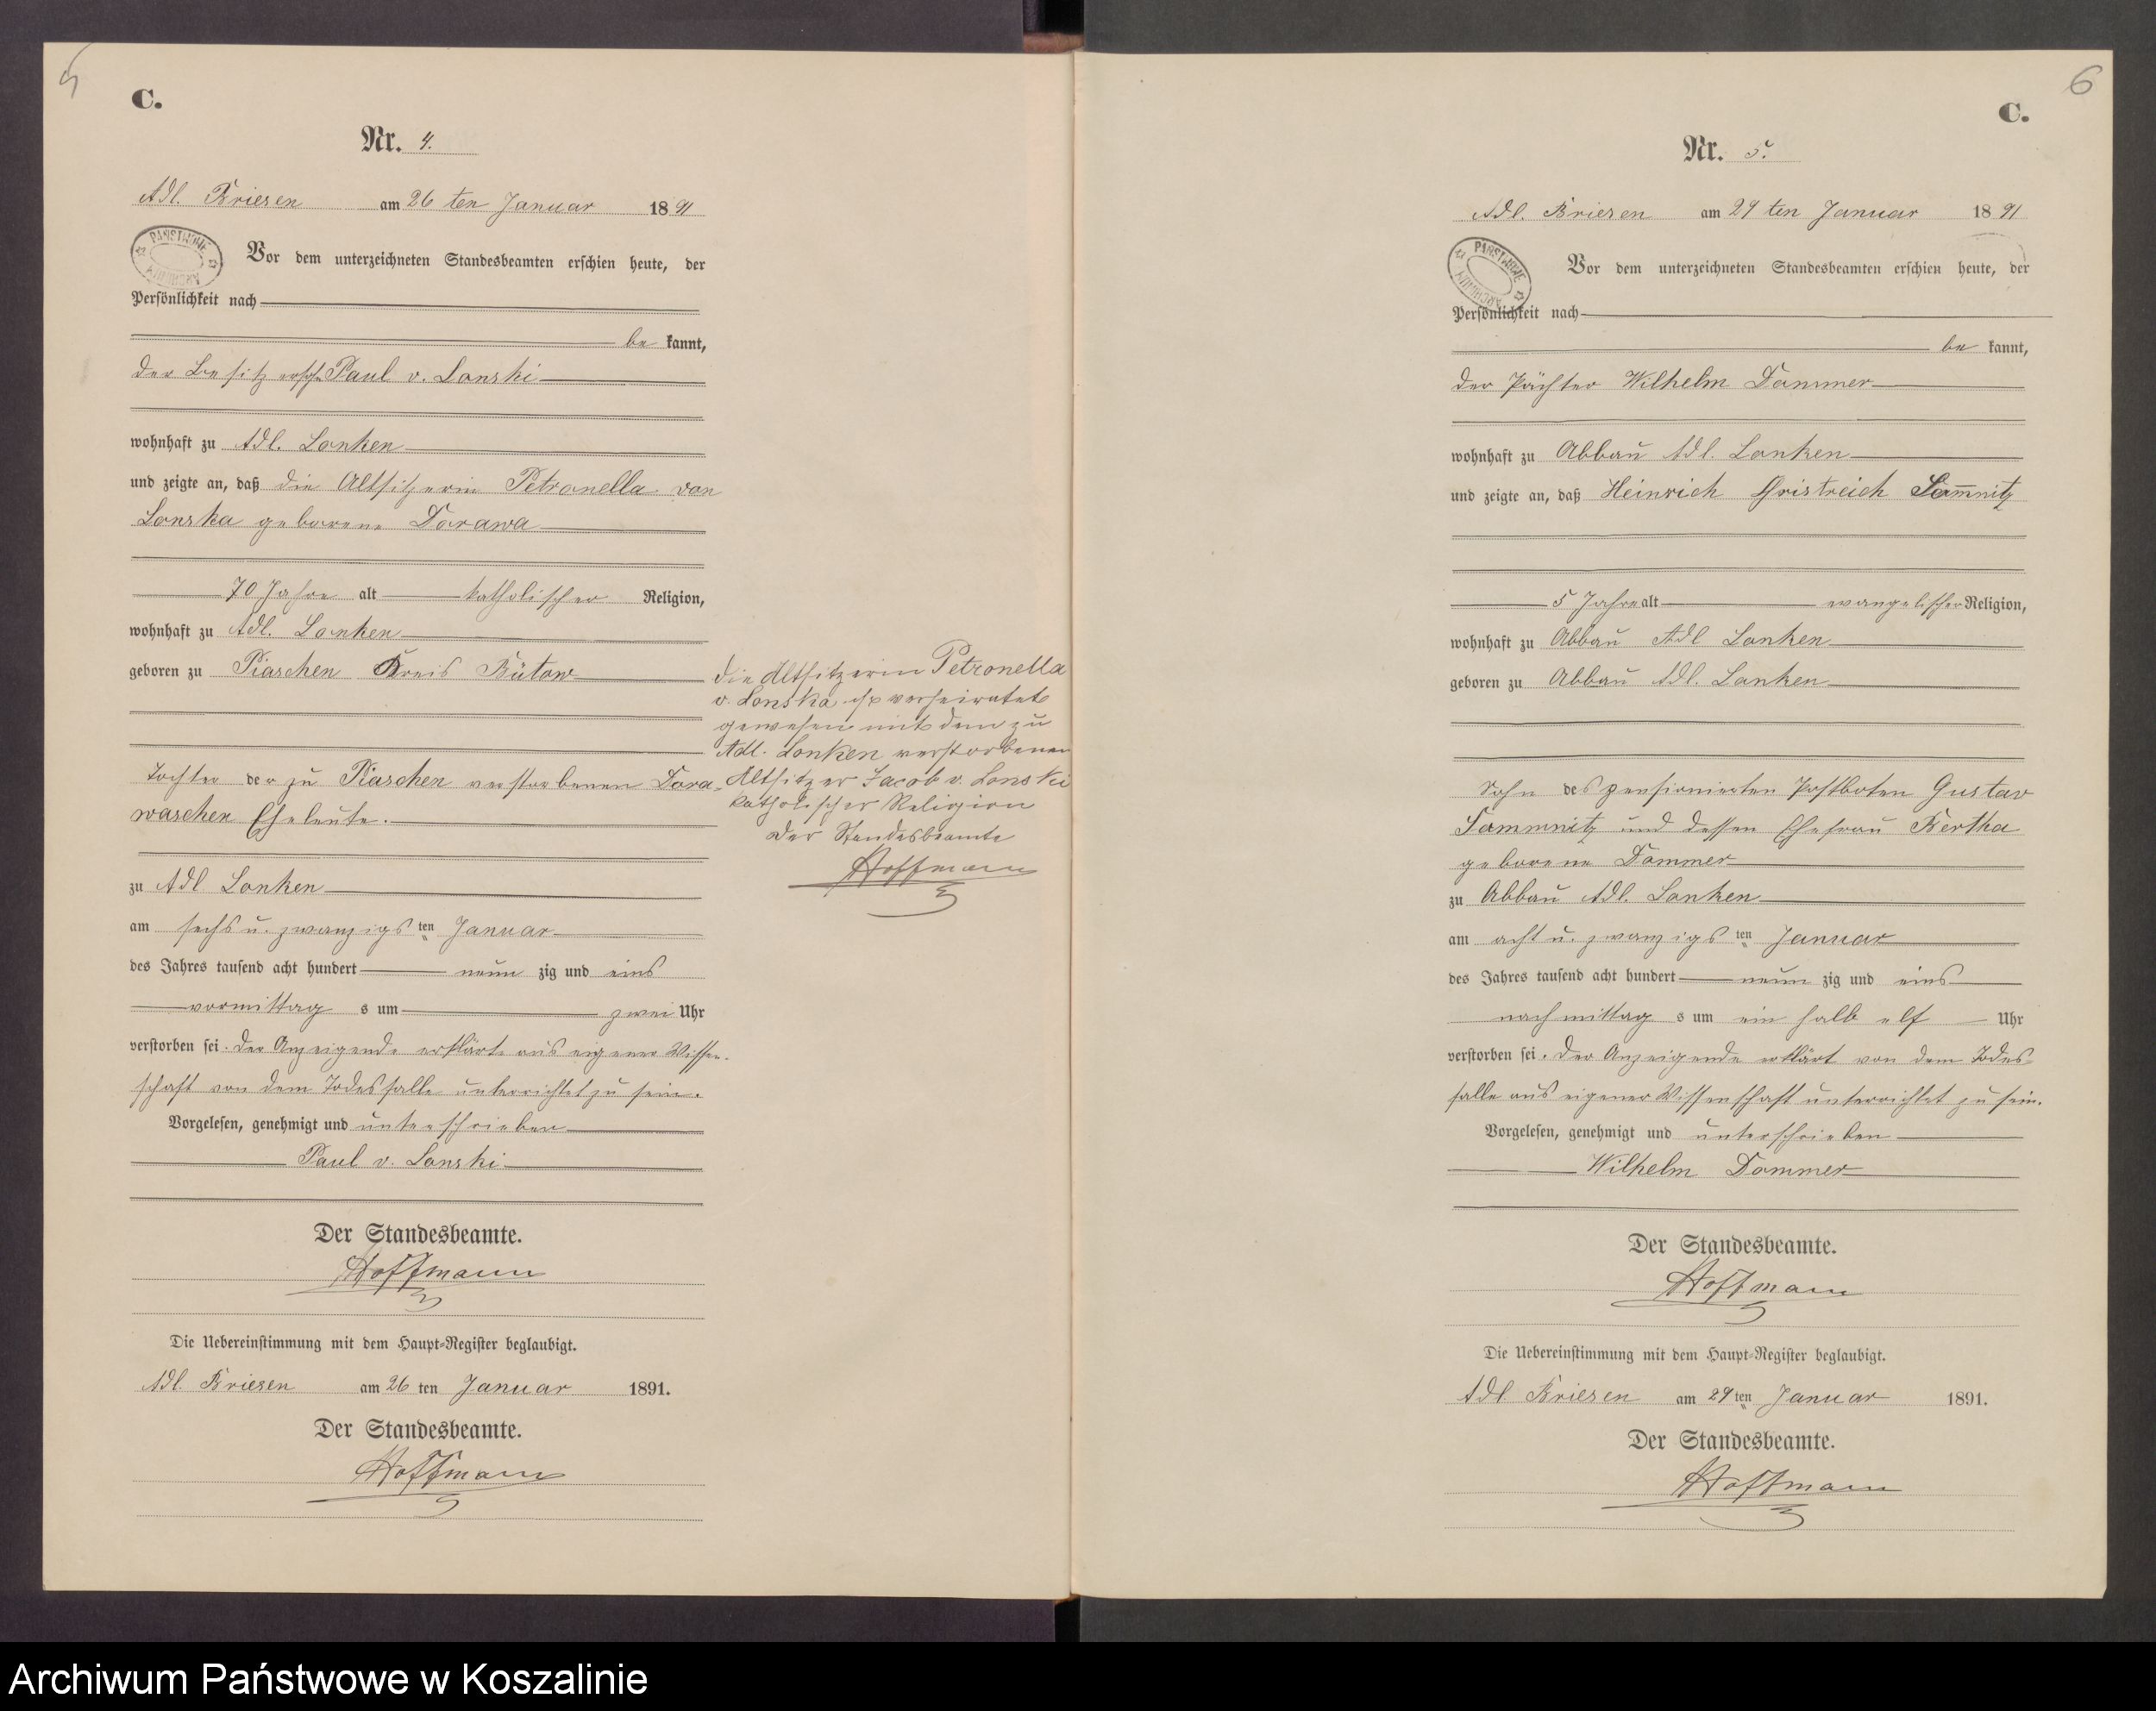 5
C.
Nr. 4.
Adl. Briesen am 26 ten Januar 1891
PAŃSTWOWE ARCHIWUM
Vor dem unterzeichneten Standesbeamten erschien heute, der
Persönlichkeit nach
be kannt,
der Besitzer Paul v. Lonski
wohnhaft zu Adl. Lonken
und zeigte an, daß die Altsitzerin Petronella von
Lonska geborene Dorawa
70 Jahre alt katholischer Religion,
wohnhaft zu Adl. Lonken
geboren zu Piaschen Kreis Bütow
Tochter der zu Piaschen verstorbenen Dora-
waschen Eheleute.
zu Adl Lonken
am sechs u. zwanzigs ten Januar
des Jahres tausend acht hundert neun zig und eins
vormittag s um zwei Uhr
verstorben sei. Der Anzeigende erklärte aus eigener Wissen-
schaft von dem Todesfalle unterrichtet zu sein.
Vorgelesen, genehmigt und unterschrieben
Paul v. Lonski
Der Standesbeamte.
Hoffmann
Die Uebereinstimmung mit dem Haupt-Register beglaubigt.
Adl. Briesen am 26 ten Januar 1891.
Der Standesbeamte.
Hoffmann
Die Altsitzerin Petronella
v. Lonska ist verheiratet
gewesen mit dem zu
Adl. Lonken verstorbenen
Altsitzer Jacob v. Lonski
katholischer Religion
Der Standesbeamte
Hoffmann
6
C.
Nr. 5.
Adl. Briesen am 29 ten Januar 1891
PAŃSTWOWE ARCHIWUM
Vor dem unterzeichneten Standesbeamten erschien heute, der
Persönlichkeit nach
be kannt,
der Pächter Wilhelm Dommer
wohnhaft zu Abbau Adl. Lonken
und zeigte an, daß Heinrich Gristreich Som̅nitz
5 Jahre alt evangelischer Religion,
wohnhaft zu Abbau Adl Lonken
geboren zu Abbau Adl. Lonken
Sohn des pensionierten Postboten Gustav
Sommnitz und dessen Ehefrau Bertha
geborene Dommer
zu Abbau Adl. Lonken
am acht u. zwanzigs ten Januar
des Jahres tausend acht hundert neun zig und eins
nachmittag s um ein halb elf Uhr
verstorben sei. Der Anzeigende erklärt von dem Todes-
falle aus eigener Wissenschaft unterrichtet zu sein.
Vorgelesen, genehmigt und unterschrieben
Wilhelm Dommer
Der Standesbeamte.
Hoffmann
Die Uebereinstimmung mit dem Haupt-Register beglaubigt.
Adl. Briesen am 29 ten Januar 1891.
Der Standesbeamte.
Hoffmann
Archiwum Państwowe w Koszalinie